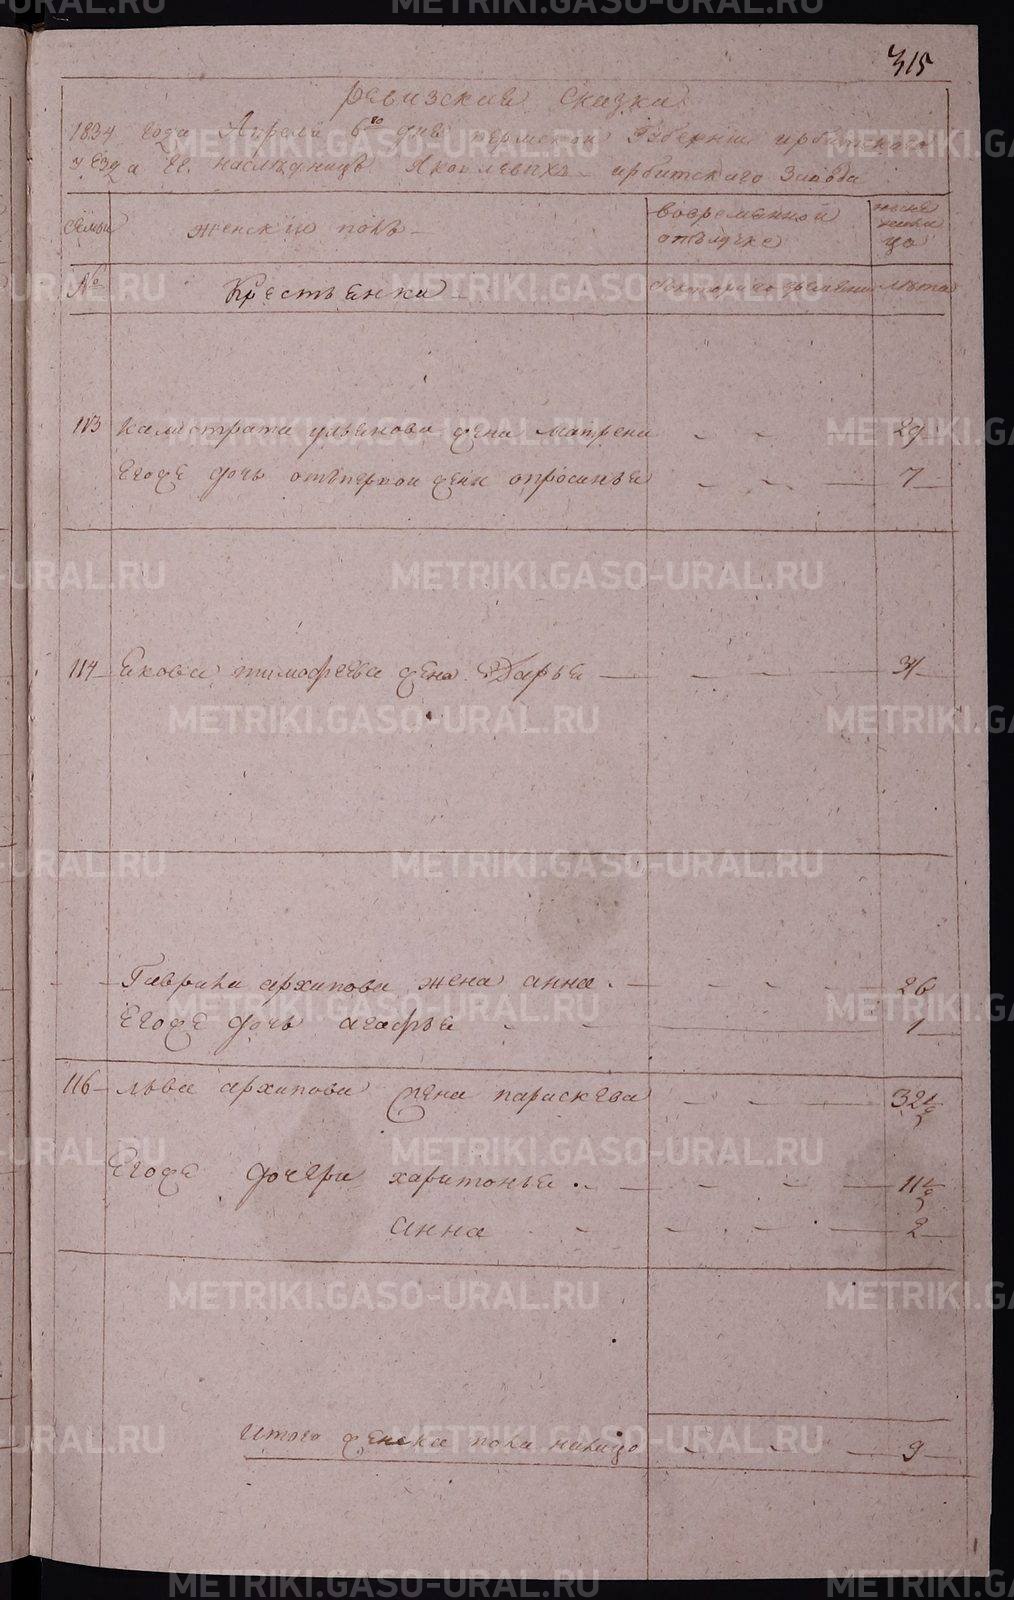 315
Ревизския сказки
1834 года Апреля 6го дня пермской Губернии ирбитского
уезда Гг. наследницъ Яковлевыхъ ирбитскаго завода
семьи
женский полъ
вовременной отълучке
ныне на лицо
№
Крестьянки
Лета
113 Калистрата ульянова жена матрена - - - 29
Егоже дочь отъпервой жени опросинья - - - 7
114 Якова тимофеева жена Дарья - - -
Гаврила архипова жена анна - - - 26
Егоже дочь агафья - - 1
116 льва архипова жена парасковья - - - 32 1/2
Егоже дочери харитонья - - - 11 1/2
анна - - - 2
итого женска пола налицо - - - 9
METRIKI.GASO-URAL.RU